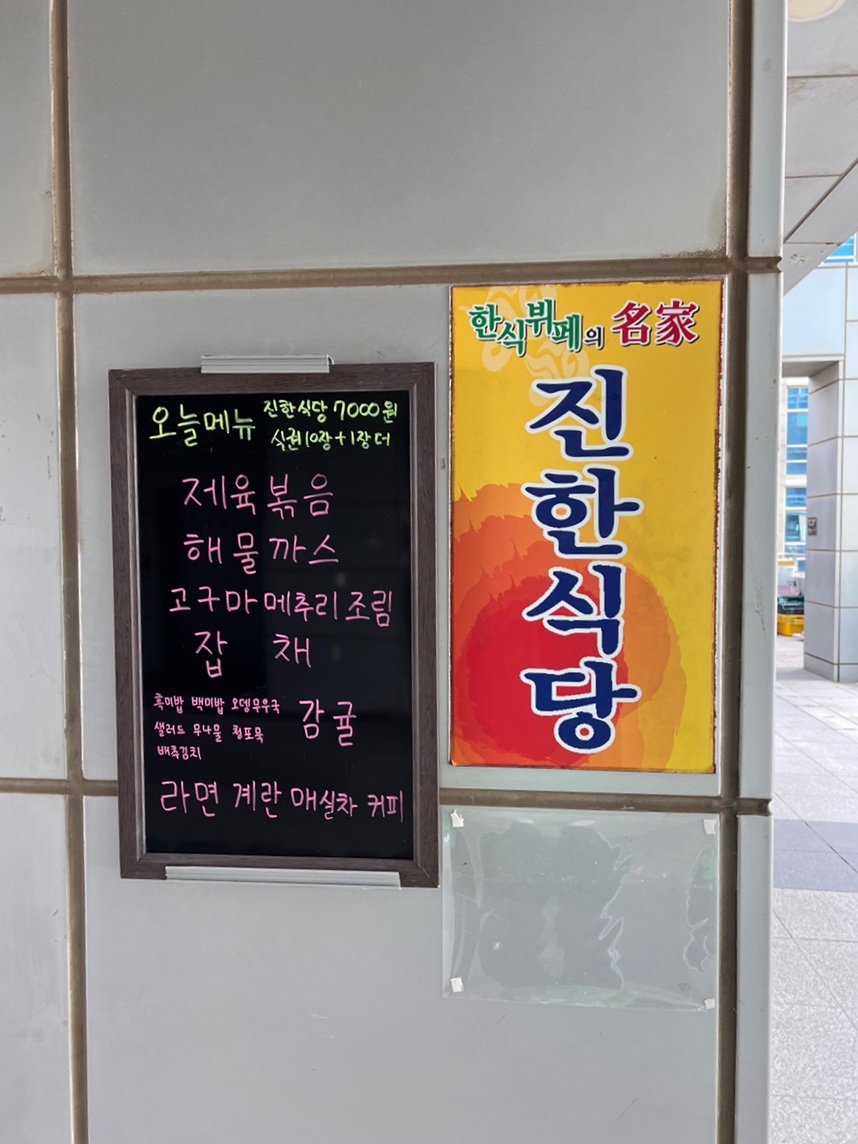 오늘메뉴 진한식당 7000원
식권10장+1장 더
제육볶음
해물까스
고구마 메추리조림
잡채
흑미밥 백미밥 오뎅무우국
샐러드 무나물 청포묵
배추김치
감귤
라면 계란 매실차 커피
한식뷔페의 名家
진한식당